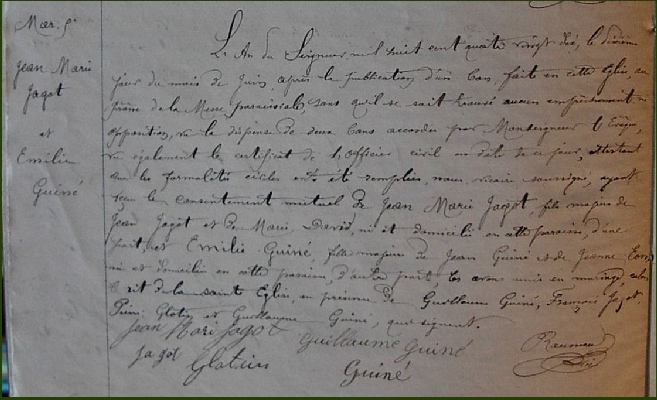 Mar. 5e
Jean Marie
Jagot
et
Emilie
Guiné
L'An du Seigneur mil huit cent quatre vingt dix, le dixième
jour du mois de Juin, après la publication d'un ban, fait en cette Eglise, au
prône de la Messe paroissiale, sans qu'il se soit trouvé aucun empêchement ni
opposition, vu la dispense de deux bans accordée par Monseigneur l'Evêque,
vu également le certificat de l'Officier civil en date de ce jour, attestant
que les formalités civiles ont été remplies, nous, vicaire soussigné, ayant
reçu le consentement mutuel de Jean Marie Jagot, fils majeur de
Jean Jagot et de Marie David, né et domicilié en cette paroisse, d'une
part, et Emilie Guiné, fille majeure de Jean Guiné et de Jeanne
née et domiciliée en cette paroisse, d'autre part, les avons unis en mariage, selon
le rit de la sainte Eglise, en présence de Guillaume Guiné, François Jagot
Pierre Glotin et Guillaume Guiné, qui signent.
Jean Mari Jagot Guillaume Guiné
Jagot Glotin Guiné